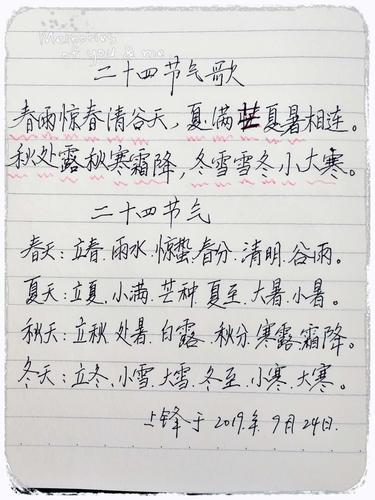 Memories
of you & me
二十四节气歌
春雨惊春清谷天，夏满芒夏暑相连。
秋处露秋寒霜降，冬雪雪冬小大寒。
二十四节气
春天：立春.雨水.惊蛰.春分.清明.谷雨。
夏天：立夏.小满.芒种.夏至.大暑.小暑。
秋天：立秋.处暑.白露.秋分.寒露.霜降。
冬天：立冬.小雪.大雪.冬至.小寒.大寒。
上锋于2019.年9月24日.